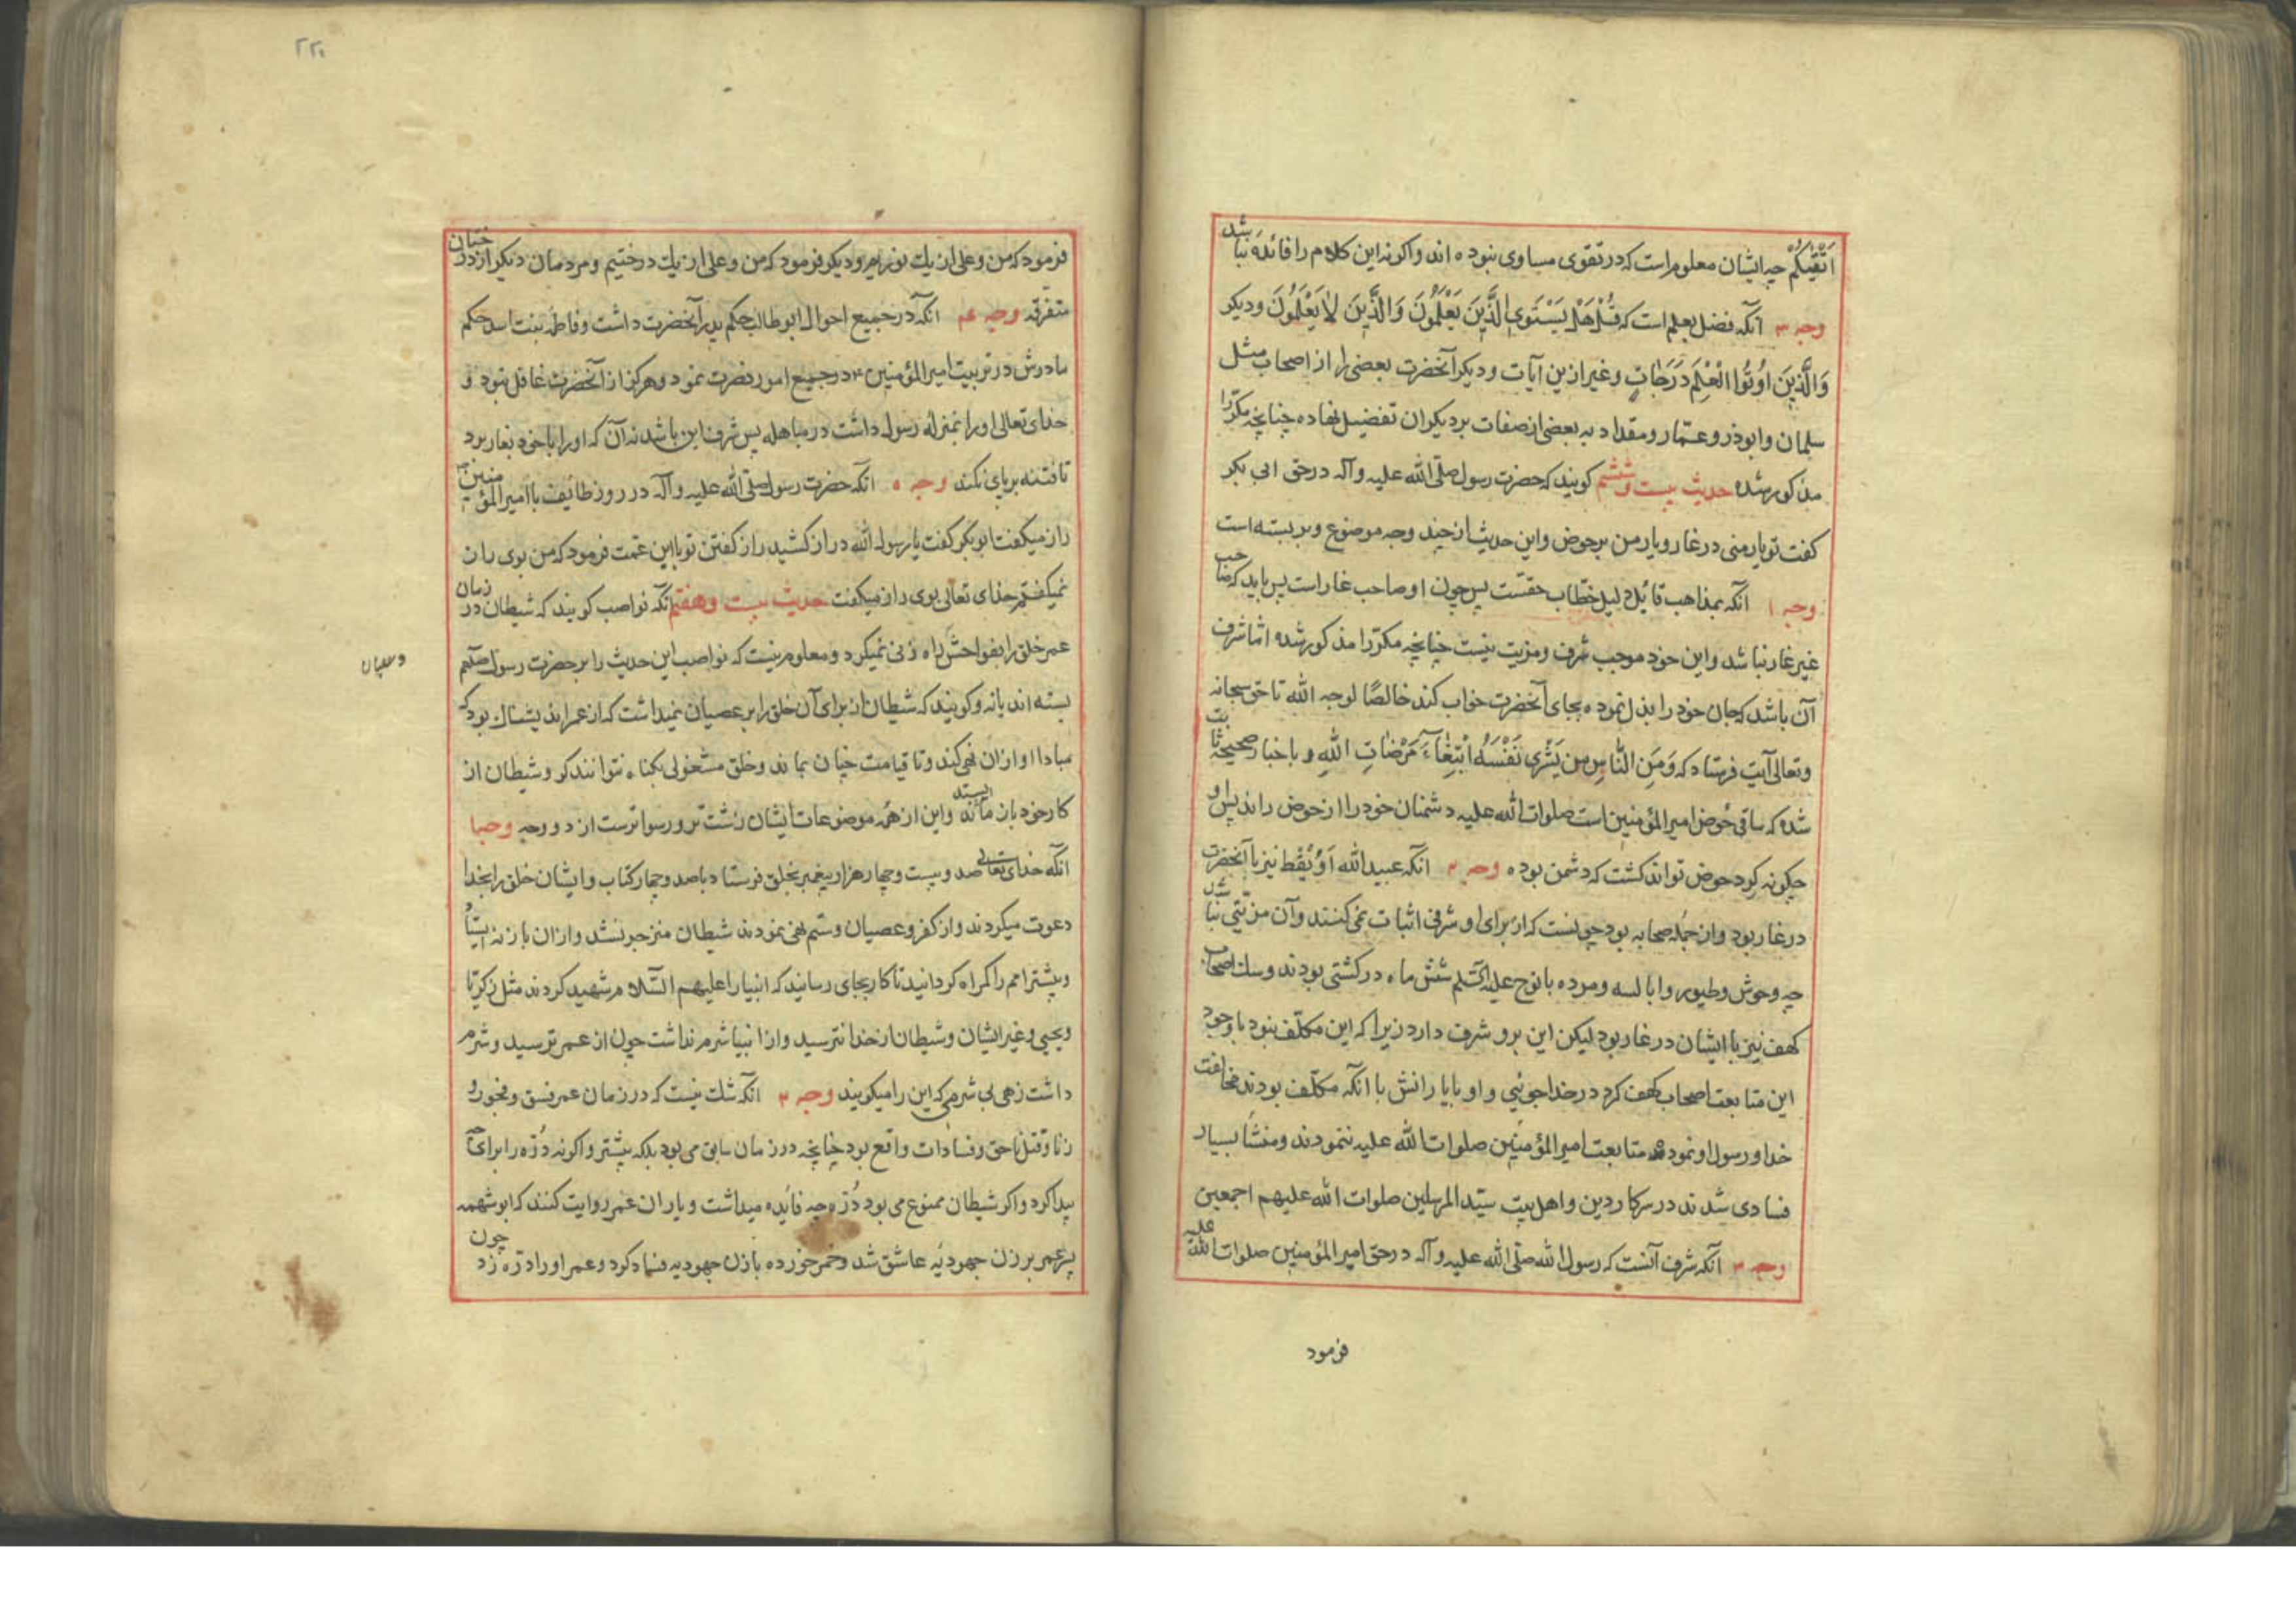 اَتْقٰیکُمْ چه ایشان معلوم است که در تقوی مساوی نبوده اند واکرنه این کلام را فائده نباشد
وجه ۳ انکه فضل بعلم است که قُلْ هَلْ یَسْتَوِی الَّذِینَ یَعْلَمُونَ وَالَّذِینَ لاٰ یَعْلَمُونَ ودیکر
وَالَّذِینَ اُوتُوا الْعِلْمَ دَرَجٰاتٍ وغیر ازین آیات ودیکر آنحضرت بعضی را از اصحاب مثل
سلمان وابوذر وعمّار ومقداد به بعضی از صفات بر دیکران تفضیل نهاده چنانچه مکرّرا
مذکور شده حدیث بیست وششم کویند که حضرت رسول صلّی الله علیه وآله در حق ابی بکر
کفت تو یار منی در غار ویار من بر حوض واین حدیث از چند وجه موضوع وبر بسته است
وجه ۱ انکه بمذاهب قائل دلیل خطاب حقست پس چون او صاحب غار است پس باید که صاحب
غیر غار نباشد واین خود موجب شرف ومزیت نیست چنانچه مکرّرا مذکور شده امّا شرف
آن باشد که جان خود را بذل نموده بجای آنحضرت خواب کند خالصًا لوجه الله تا حق سبحانه
وتعالی آیت فرستاد که وَمِنَ النّاسِ مَن یَشْری نَفْسَهُ ابْتِغٰآءَ مَرْضٰاتِ اللهِ و باخبار صحیحه ثابت
شده که ساقی حوض امیر المؤمنین است صلوات الله علیه دشمنان خود را از حوض راند پس او
چکونه کرد حوض تواند کشت که دشمن بوده وجه ۲ انکه عبید الله نیز با آنحضرت
در غار بود واز جمله صحابه بود چیست که از برای او شرفی اثبات نمی کنند وآن مزیتی نباشد
چه وحوش وطیور وابالسه ومرده با نوح علیه السّلم شش ماه در کشتی بودند وسک اصحاب
کهف نیز با ایشان در غار بود لیکن این برو شرف دارد زیرا که این مکلّف نبود با وجود
این متابعت اصحاب کهف کرد در خدا جوئی واو با یارانش با انکه مکلّف بودند مخالفت
خدا ورسول او نموده متابعت امیر المؤمنین صلوات الله علیه ننمودند ومنشأ بسیار
فسادی شدند در سر کار دین واهل بیت سیّد المرسلین صلوات الله علیهم اجمعین
وجه ۳ انکه شرف آنست که رسول الله صلّی الله علیه وآله در حق امیر المؤمنین صلوات الله علیه
فرمود
۲۲۰
فرمود که من وعلی از یك نوریم ودیکر فرمود که من وعلی از یك درختیم ومردمان دیکر از درختان
متفرقه وجه ۴ انکه در جمیع احوال ابو طالب حکم پدر آنحضرت داشت وفاطمه بنت اسد حکم
مادرش در تربیت امیر المؤمنین در جمیع امور نصرت نمود وهرکز از آنحضرت غافل نبود و
خدای تعالی او را بمنزله رسول داشت در مباهله پس شرف این باشد نه آن که او را با خود بغار برد
تا فتنه بر پای نکند وجه ۵ انکه حضرت رسول صلّی الله علیه وآله در روز طائف با امیر المؤمنین
راز میکفت ابو بکر کفت یا رسول الله دراز کشید راز کفتن تو با ابن عمت فرمود که من بوی راز
نمیکفتم خدای تعالی بوی راز میکفت حدیث بیست وهفتم انکه نواصب کویند که شیطان در زمان
عمر خلق را بفواحش راه زنی نمیکرد ومعلوم نیست که نواصب این حدیث را بر حضرت رسول صلعم
بسته اند یا نه وکویند که شیطان از برای آن خلق را بر عصیان نمیداشت که از عمر اندیشناك بود که
مبادا او ازان نهی کند وتا قیامت چنان بماند وخلق مشغولی بکناه نتوانند کرد وشیطان از
کار خود باز ماند واین از همه موضوعات ایشان زشت تر ورسواتر ست از دو وجه وجه ۱
انکه خدای تعالی صد وبیست وچهار هزار پیغمبر بخلق فرستاد با صد وچهار کتاب وایشان خلق را بخدا
دعوت میکردند واز کفر وعصیان وستم نهی نمودند شیطان منزجر نشد وازان باز نه ایستاد
وبیشتر امم را کمراه کردانید تا کار بجای رسانید که انبیا را علیهم السّلام شهید کردند مثل زکریّا
ویحیی وغیر ایشان وشیطان از خدا نترسید واز انبیا شرم نداشت چون از عمر ترسید وشرم
داشت زهی بی شرمی که این را میکویند وجه ۲ انکه شك نیست که در زمان عمر فسق وفجور و
زنا وقتل ناحق وفسادات واقع بود چنانچه در زمان سابق می بود بلکه بیشتر واکرنه درّه را برای چه
پیدا کرد واکر شیطان ممنوع می بود درّه چه فایده میداشت ویاران عمر روایت کنند که ابو شهمه
پسر عمر بر زن جهودیّه عاشق شد وخمر خورده با زن جهودیه فساد کرد وعمر او را درّه زد چون